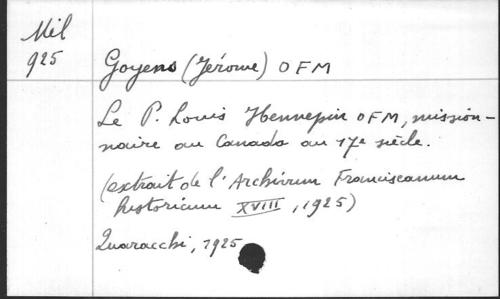 Mil
925
Goyens (Jérome) OFM
Le P. Louis Hennepin OFM, mission-
naire au Canada au 17e siècle.
(extrait de l'Archivum Franciscanum
historicum XVIII, 1925)
Quaracchi, 1925